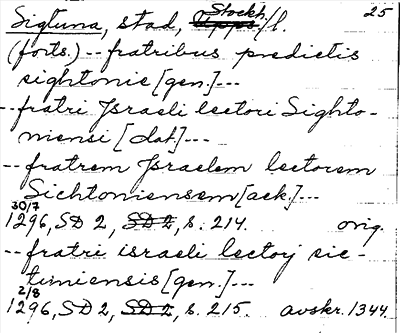 Sigtuna, stad, Stockh./l. 25
(forts.) -- fratribus predictis
sightonie [gen.]---
-- fratri Israeli lectori Sighto-
niensi [dat.]---
-- fratrem Israelem lectorem
Sichtoniensem [ack.]---
30/7
1296, SD 2, SD 2, s. 214. orig.
-- fratri israeli lectorj sic-
tuniensis [gen.]---
2/8
1296, SD 2, SD 2, s. 215. avskr. 1344.